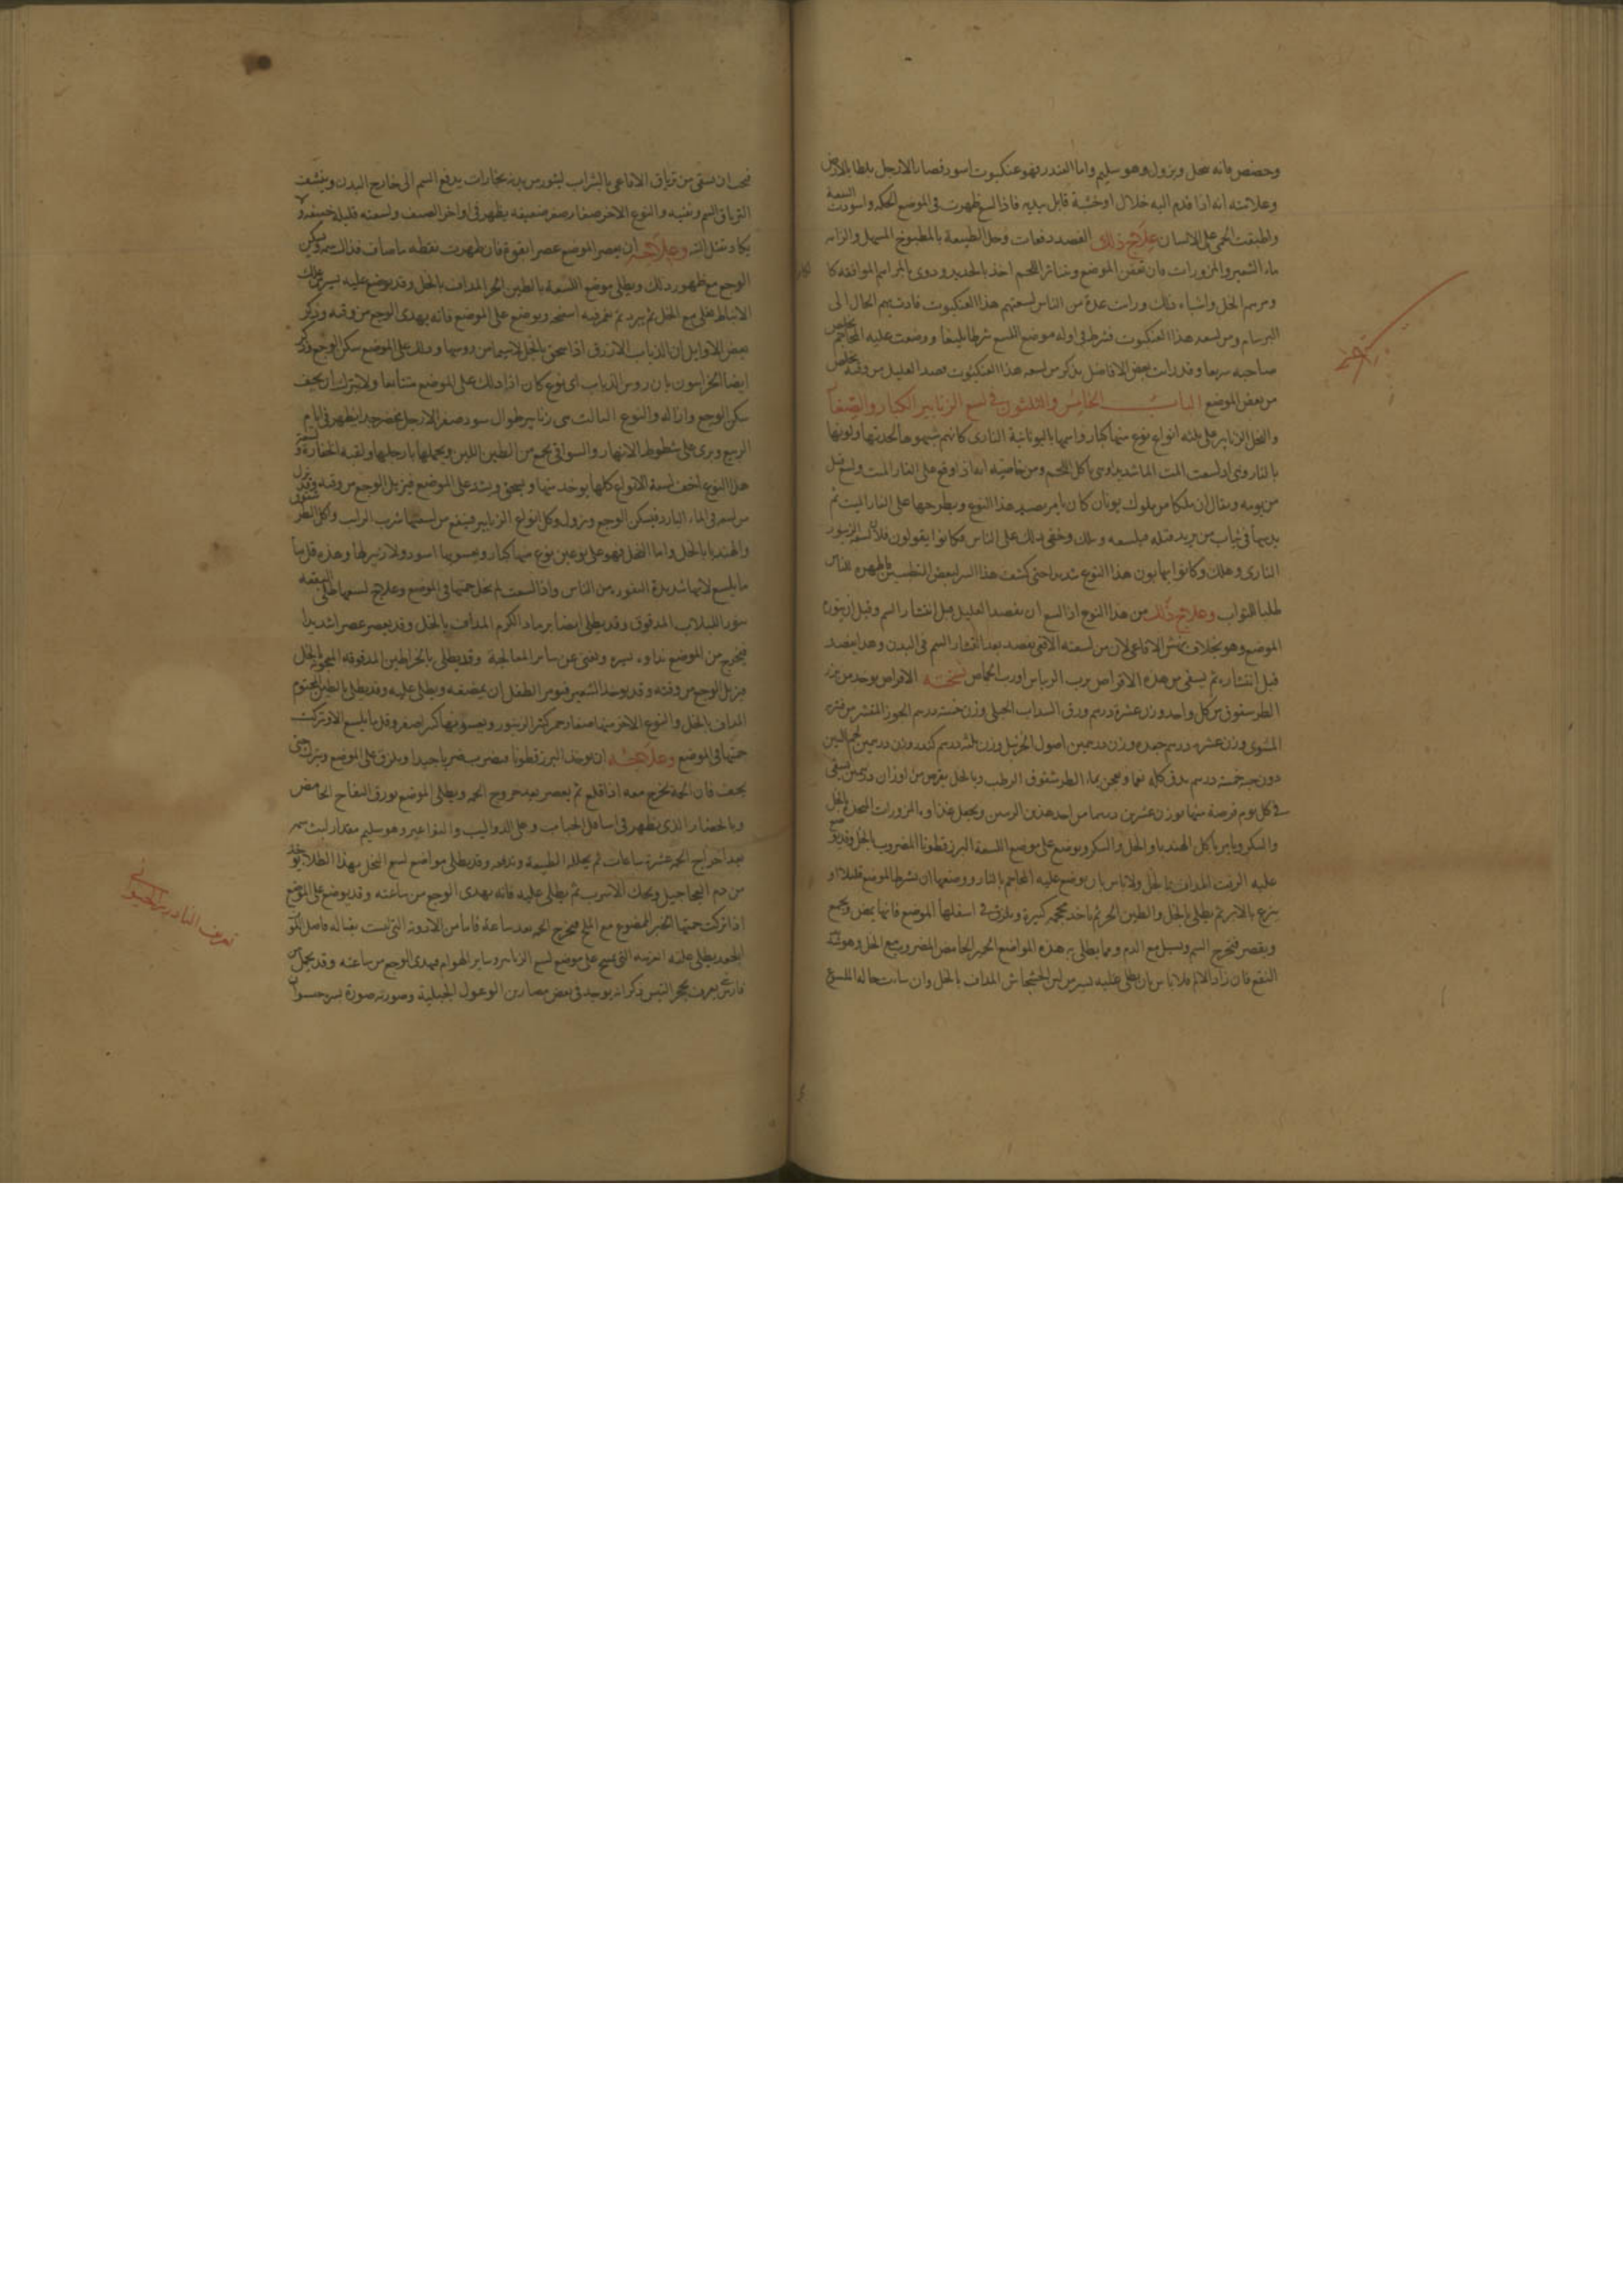 وحضض فانه يحل ويزول وهو سليم واما الفندر فهو عنكبوت اسود قصار الارجل يلطا بالارض
وعلامته انه اذا قدم اليه خلال او خشبة قابل بيديه فاذا لسع ظهرت في الموضع الحكة واسودت اللسعة
واطبقت الحمى على الانسان علاج ذلك الفصد دفعات وحل الطبيعة بالمطبوخ المسهل والزامه
ماء الشعير والمزورات فان تعفن الموضع وتناثر اللحم اخذ بالحديد ودوى بالمراهم الموافقة كا
ومرهم الخل واشباه ذلك ورايت عدة من الناس لسعتهم هذا العنكبوت فادت بهم الحال الى
البرسام ومن لسعه هذا العنكبوت فشرط في اوله موضع اللسع شرطا بليغا ووضعت عليه المحاجم يخلص
صاحبه سريعا وقد رايت بعض الافاضل يذكر من لسعه هذا العنكبوت فصد العليل من وقته يخلص
من بعض الموضع الباب الخامس والثلثون في لسع الزنابير الكبار والصغار
والنحل الزنابير على ثلثه انواع نوع منها كبار واسمها باليونانية النارى كانهم شبهوها لحدتها ولونها
بالنار وهى اذا لسعت المت الما شديدا وهى ياكل اللحم ومن خاصيته انه اذا وقع على الفار الميت ولسع قتل
من يومه ويقال ان ملكا من ملوك يونان كان يامر بصيد هذا النوع ويطرحها على الفار الميت ثم
يرميها في ثياب من يريد قتله فيلسعه ويهلك وخفى ذلك على الناس فكانوا يقولون فلان لسعه الزنبور
النارى وهلك وكانوا يهابون هذا النوع شديدا حتى كشف هذا السر لبعض المتطببين فاظهره للناس
طلبا للثواب وعلاج ذلك من هذا النوع اذا لسع ان يفصد العليل قبل انتشار السم وقبل ان يتورم
الموضع وهو بخلاف نهش الافاعى لان من لسعته الافعى يفصد بعد انتشار السم في البدن وهذا يفصد
قبل انتشاره ثم يسقى من هذه الاقراص برب الريباس او رب الحماض نسخته الاقراص يوخذ من بزر
الطرسفوق من كل واحد وزن عشرة درهم ورق السداب الجبلى وزن خمسة درهم الجوز المقشر من قشره
المشوى وزن عشرة درهم جعدة وزن درهمين اصول الحرمل وزن ثلثه درهم كندر وزن درهمين لحم التين
دون حبه خمسة درهم يدق كله نعما ويعجن بماء الطرشقوق الرطب وبالخل يقرص من اوزان درهمين يسقى
في كل يوم قرصة منها بوزن عشرين درهما من احد هذين الربين ويجعل غذاوه المزورات المتخذة بالخل
والسكر ويامر باكل الهندبا والخل والسكر ويوضع على موضع اللسعة البزرقطونا المضروب بالخل وقد يوضع
عليه الزفت المداف بالخل ولا باس بان يوضع عليه المحاجم بالنار ووضعها ان يشرط الموضع قليلا او
يبزغ بالابر ثم يطلى بالخل والطين الحر ثم ياخذ محجمه كبيرة ويلزق في اسفلها الموضع فانها يمص ويجمع
ويقصر فيخرج السم ويسيل مع الدم ومما يطلى به هذه المواضع الخمير الحامض المضروب مع الخل وهو بين
النفع فان زاد الالم فلا باس بان يطلى عليه يسير من لبن الخشخاش المداف بالخل وان ساءت حاله الملسوع
فيجب ان يسقى من ترياق الافاعى بالشراب ليثور من بدنه بخارات يدفع السم الى خارج البدن وينشف
الترياق السم ويفنيه والنوع الاخر صغار صفر ضعيفه يظهر في اواخر الصيف ولسعته قليلة خسيفه لا
يكاد تقتل البتة وعلاجه ان يعصر الموضع عصرا بقوة فان ظهرت نقطه ماء صاف فذاك سمه ويسكن
الوجع مع ظهور ذلك ويطلى موضع اللسعة بالطين الحر المداف بالخل وقد يوضع عليه يسير من علك
الانباط مغلى مع الخل ثم يبرد ثم يغمر فيه اسفنجه ويوضع على الموضع فانه يهدى الوجع من وقته وذكر
بعض الاوايل ان الذباب الازرق اذا سحق بالخل لا سيما من روسها ودلك على الموضع سكن الوجع وذكر
ايضا الخراسون بان روس الذباب اى نوع كان اذا دلك على الموضع متتابعا ولا يترك ان يجف
سكن الوجع وازاله والنوع الثالث هى زنابير طوال سود صفر الارجل بخضر جدا يظهر في ايام
الربيع ويرى على شطوط الانهار والسواقى يجمع من الطين اللين ويحملها بارجلها ولقبه الحفارة ولسعة
هذا النوع اخف لسعة الانواع كلها يوخذ منها ويسحق ويشد على الموضع فيزيل الوجع من وقته وقد ينزل
من لسعه في الماء البارد فيسكن الوجع ويزول وكل انواع الزنابير فينفع من لسعتها شرب الرايب واكل الطرشقوق
والهندبا بالخل واما النحل فهو على نوعين نوع منها كبار ويعسوبها اسود ولا زبير لها وهذه قل ما
ما يلسع لانها شديدة النفور من الناس واذا لسعت لم تخل حمتها في الموضع وعلاج لسعها طلى البقعه
بورق اللبلاب المدقوق وقد يطلى ايضا برماد الكرم المداف بالخل وقد يعصر عصرا شديدا
فيخرج من الموضع نداوة يسيرة ويغنى عن سائر المعالجة وقد يطلى بالخراطين المدقوقه المعجونة بالخل
فيزيل الوجع من وقته وقد يوخذ الشعير فيومر الطفل ان يمضغه ويطلى عليه وقد يطلى بالطين المختوم
المداف بالخل والنوع الاخر منها صغار حمر كثر الزنبور ويعسوبها اكبر اصفر وقل ما يلسع الا وتركت
حمتها في الموضع وعلاجه ان يوخذ البزرقطونا فيضرب ضربا جيدا ويلزق على الموضع ويترك حتى
يجف فان الحمة يخرج معه اذا قلع ثم يعصر بعد خروج الحمه ويطلى الموضع بورق التفاح الحامض
وبالخضار الذى يظهر في اسافل الحباب وعلى الدواليب والنواعير وهو سليم مقدار لبث سمه
بعد اخراج الحمه عشرة ساعات ثم يحلله الطبيعة وتدفعه وقد يطلى مواضع لسع النحل بهذا الطلاء يوخذ
من دم الحاجيل ويحك الاسرب ثم يطلى عليه فانه يهدى الوجع من ساعته وقد يوضع على الموضع
اذا تركت حمتها الخبز الممضوغ مع الملح فيخرج الحمه بعد ساعة فاما من الادوية التى ليست بقتاله فاصل اللوف
الجعد يطلى عليه التى يمسح على موضع لسع الزنابير وساير الهوام فيهدى الوجع من ساعته وقد يحمل من
فارس يعرف بحجر التيس ذكر انه يوجد في بعض مصارين الوعول الجبلية وصورته صورة بسرحسوان
تعريف الفادزهر الحيوانى